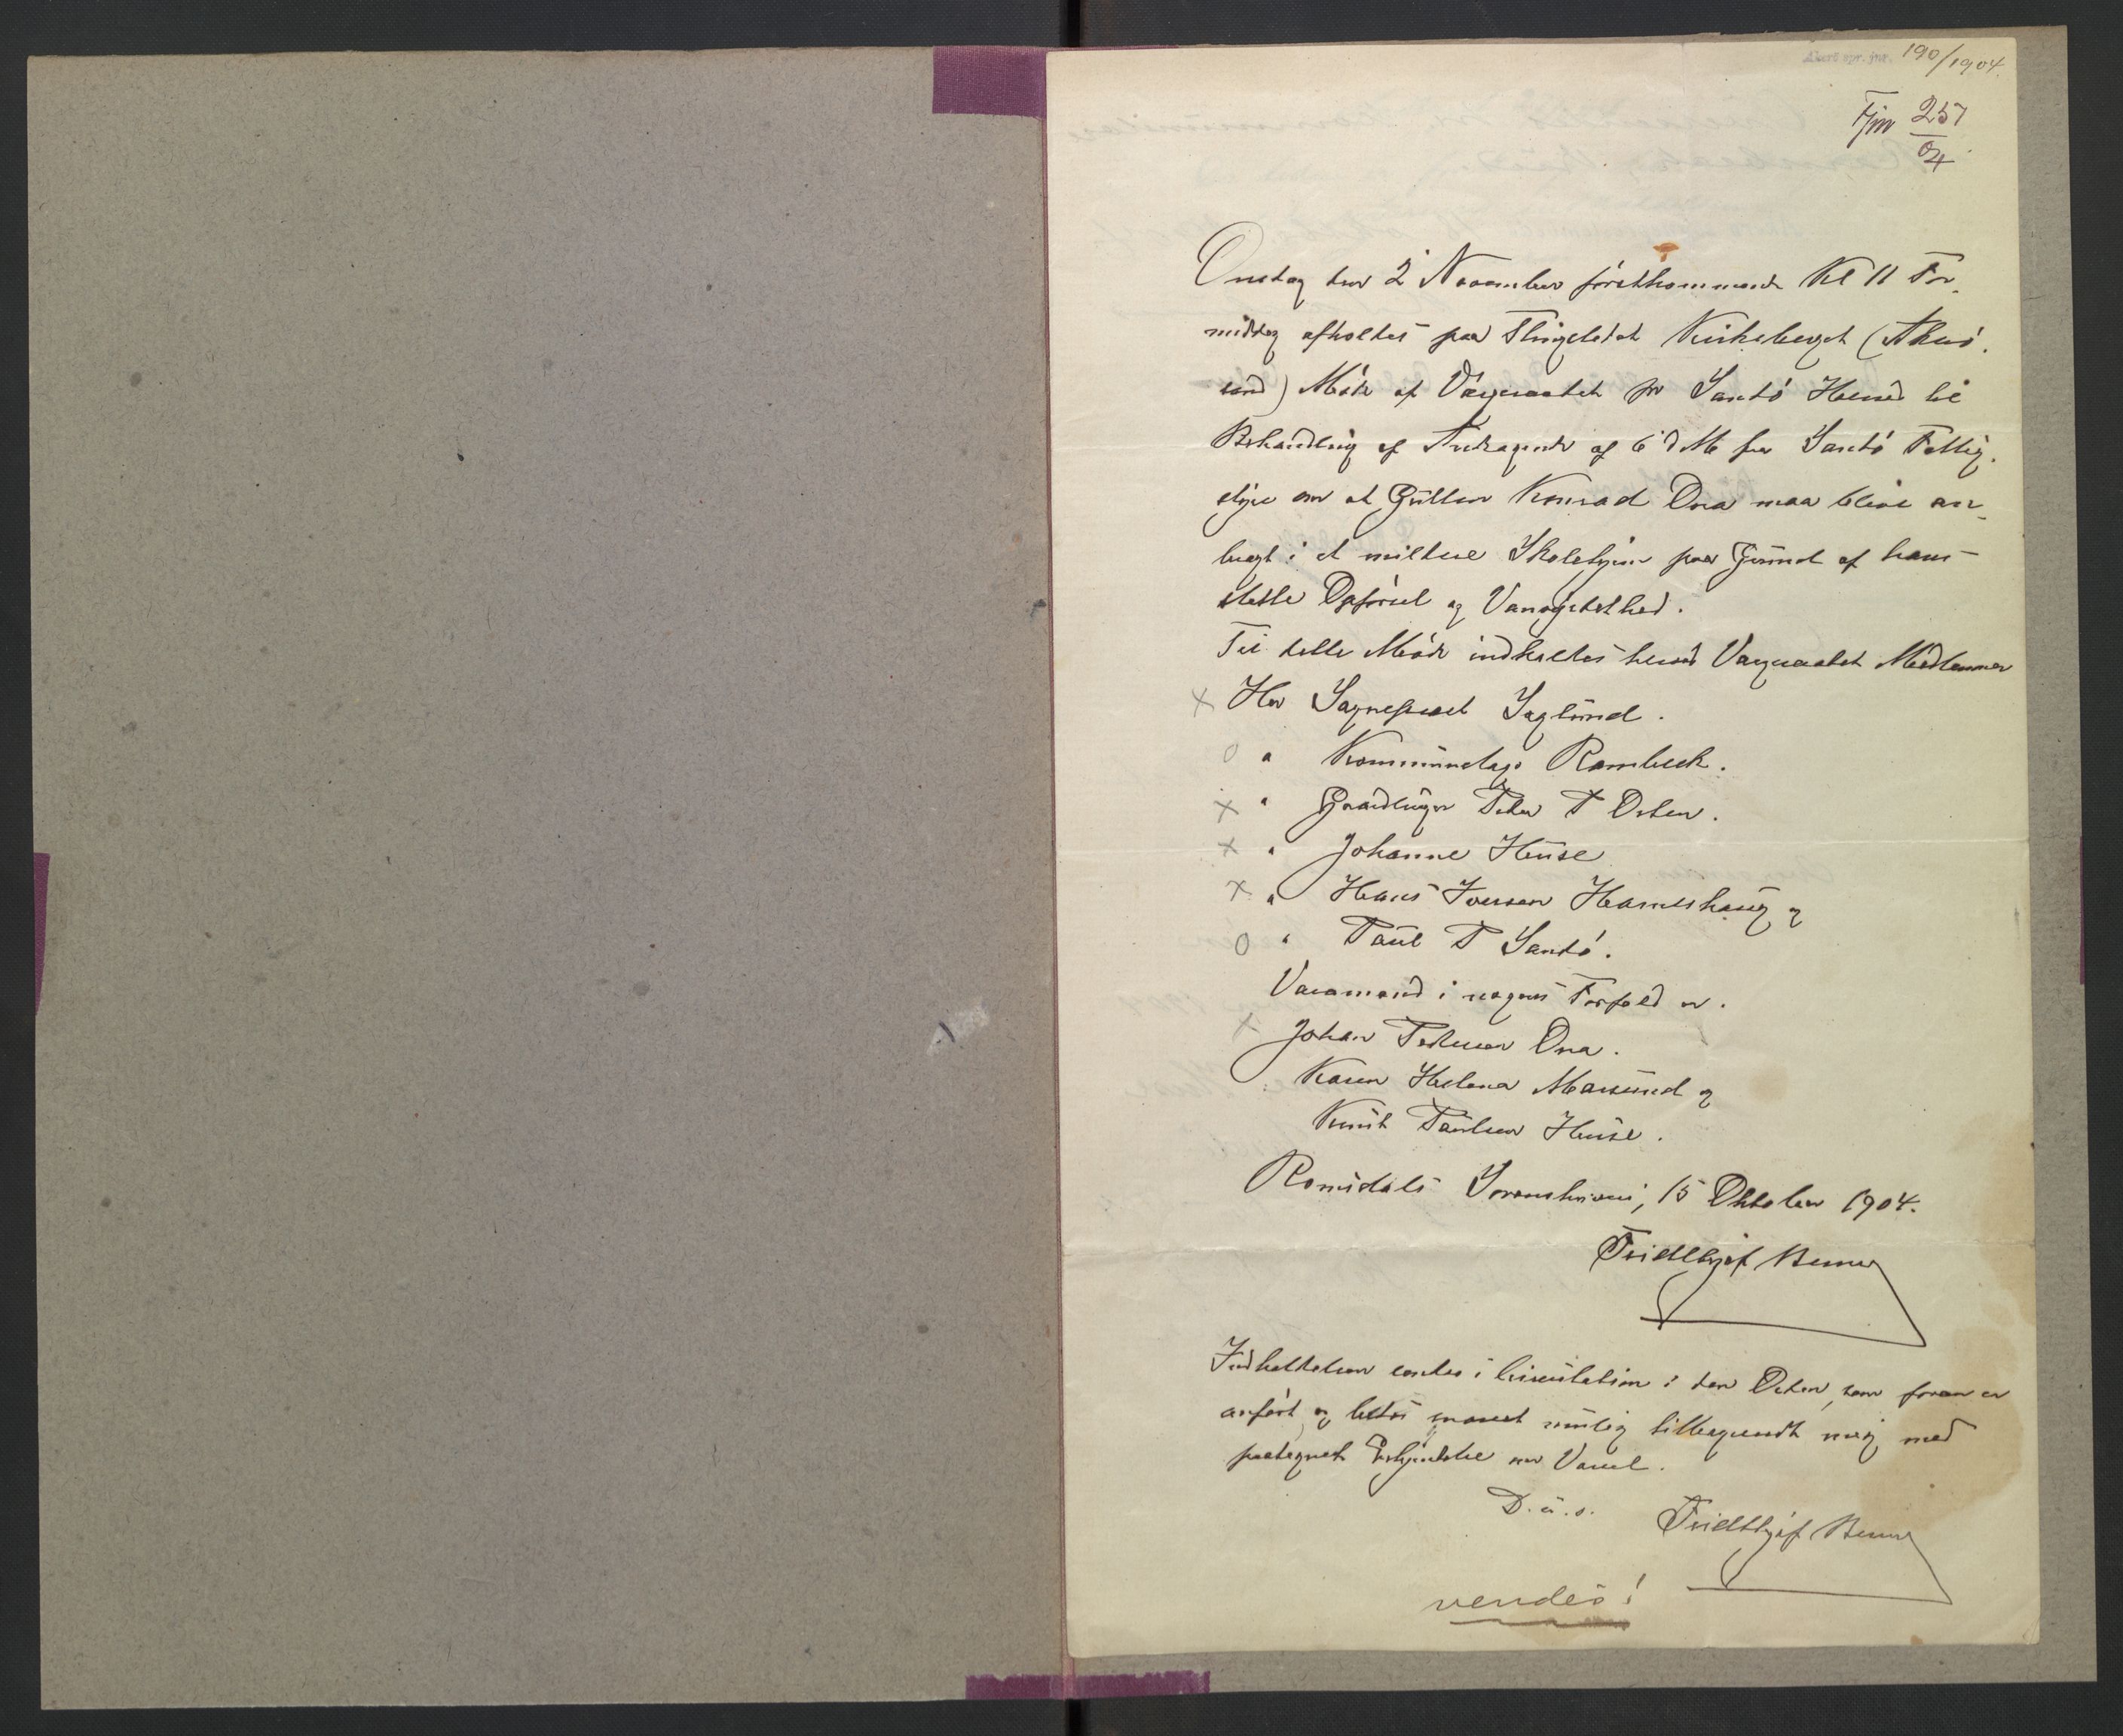 Akerø spr. jnr. 190/1904.
Fjnr 257
04
Onsdag den 2 November førstkommende Kl 11 For-
middag afholdes paa Thingstedet Kirkeberget (Akerø-
sund) Møde af Værgeraadet for Sandø Herred til
Behandling af Andragende af 6 d M fra Sandø Fattig-
styre om at Gutten Konrad Ona maa blive an-
bragt i et mildere Skolehjem paa Grund af hans
slette Opførsel og Vanartethed.
Til dette Møde indkaldes herved Værgeraadets Medlemmer
x Hr Sogneprest Søglund.
o " Kommunelæge Rambech.
x " Gaardbruger Peder P Orten.
x " Johanne Huse
x " Hans Iversen Harnshaug og
o " Paul P Sandø.
Varamænd i nogens Forfald er.
x Johan Pedersen Ona.
Karen Helena Mausund og
Knut Paulsen Huse.
Romsdals Sorenskriveri, 15 Oktober 1904.
Fridthjof Berner
Indkaldelsen sendes i Cirkulation i den Orden, som foran er
anført, og bedes snarest mulig tilbagesendt mig med
paategnet Erkjendelse om Varsel.
D. u. s. Fridthjof Berner
vendes!